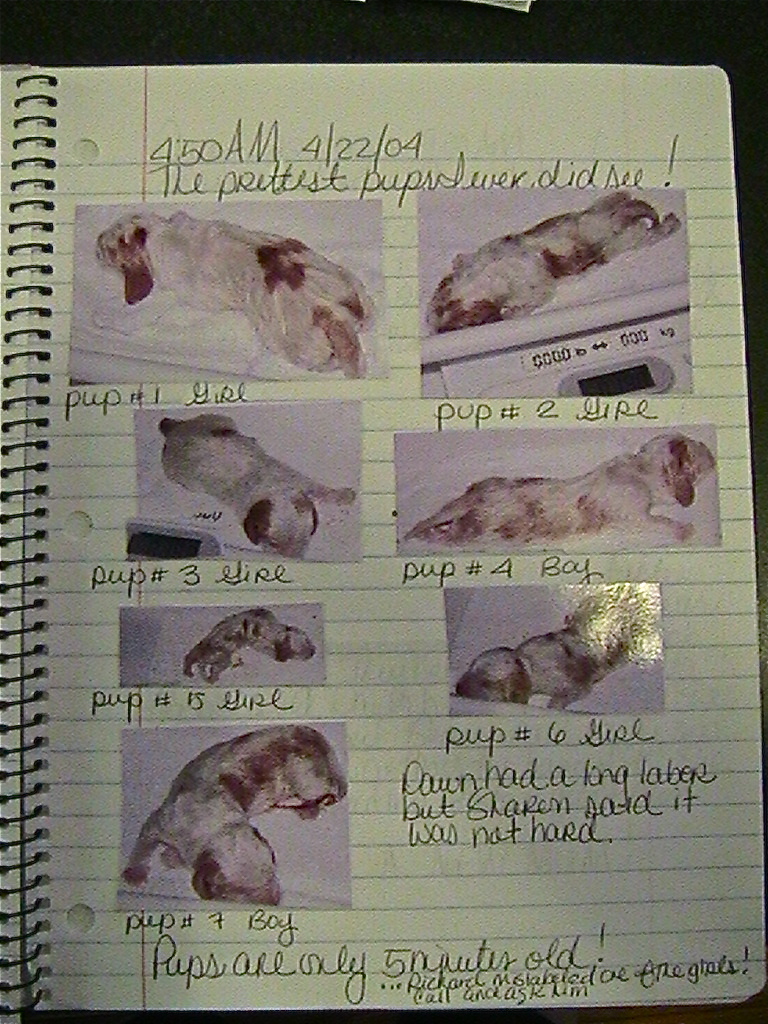 4:50AM 4/22/04
The prettist pups I ever did see!
0000 lb ↔ 000 kg
pup #1 Girl
pup # 2 Girl
pup # 3 Girl
pup # 4 Boy
pup # 5 Girl
pup # 6 Girl
Dawn had a long labor
but Sharon said it
was not hard.
pup # 7 Boy
Pups are only 5 minutes old!
...Richard mislabeled one of the girls!
Call and ask him